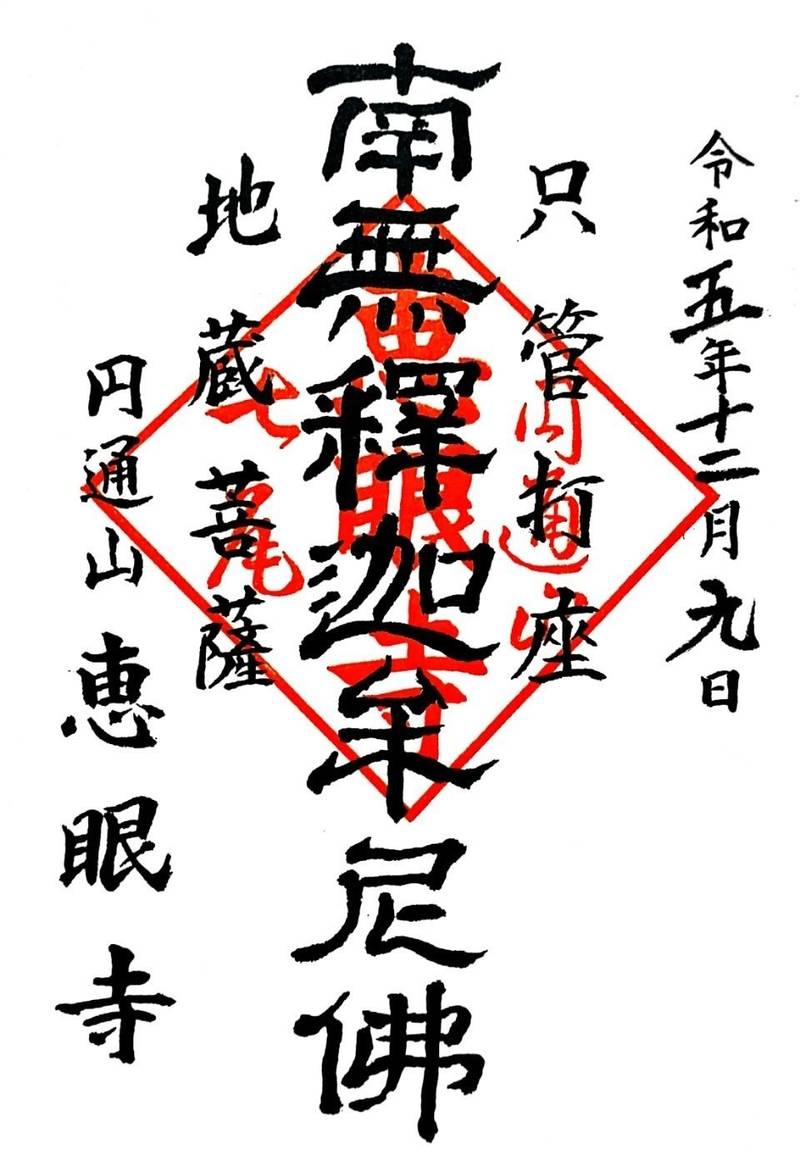 令和五年十二月九日
只管打座
南無釋迦牟尼佛
地蔵菩薩
円通山 恵眼寺
円通山
眼寺
七尾